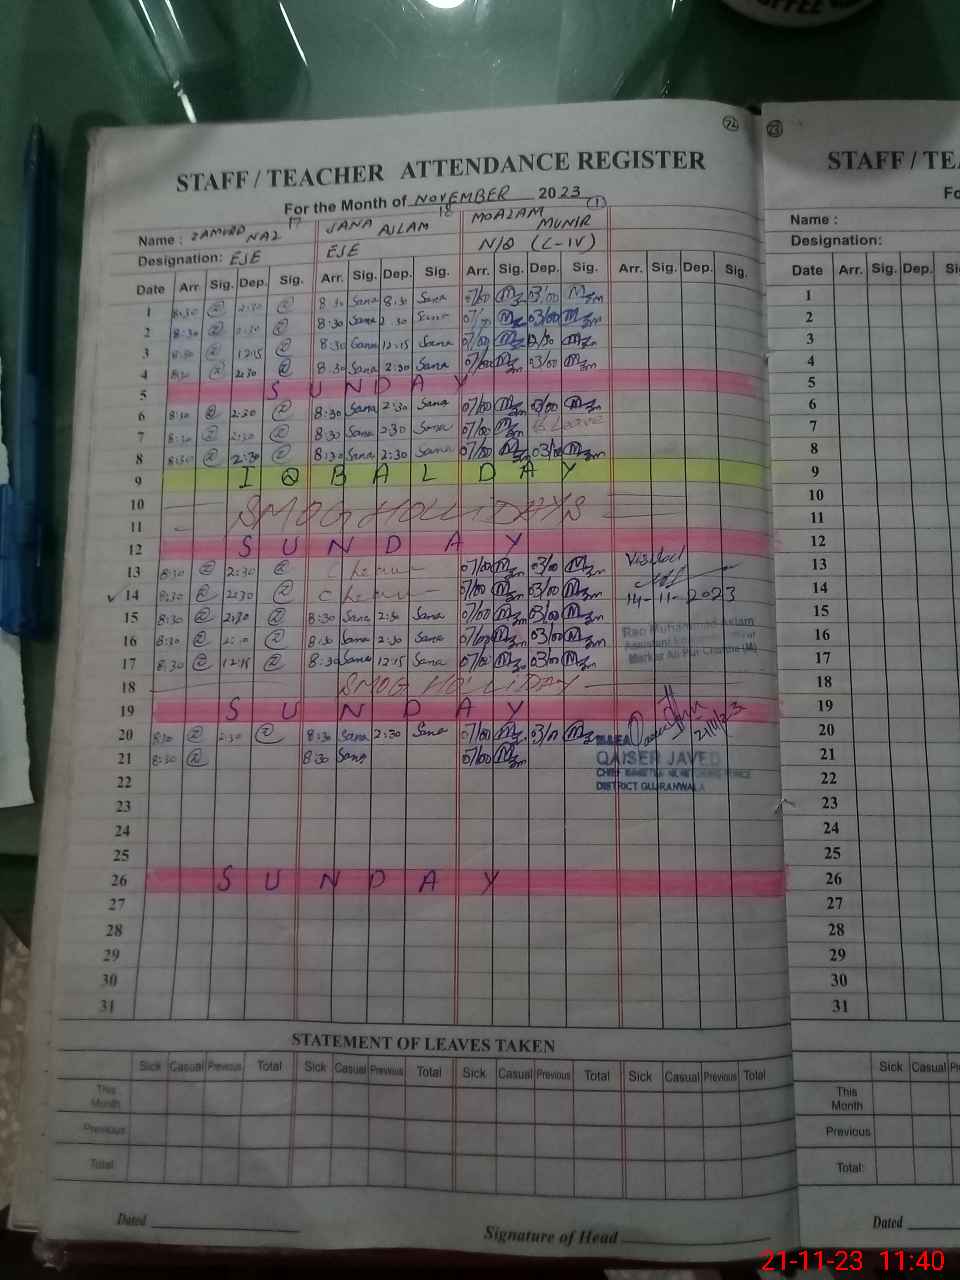 COFFEE
24 23
STAFF / TEACHER ATTENDANCE REGISTER
STAFF / TEA
For the Month of NOVEMBER 2023
Name : 17 SANA ASLAM 18 MOAZAM MUNIR (1)
Name :
Designation: EJE EJE N/Q (C-IV)
Designation:
Date Arr. Sig. Dep. Sig. Arr. Sig. Dep. Sig. Arr. Sig. Dep. Sig. Arr. Sig. Dep. Sig.
Date Arr. Sig. Dep.
1 8:30 2:30 8:30 Sana 8:30 Sana 07/00 03/00
2 8:30 2:30 8:30 Sana 2:30 Sana 03/00
3 8:30 12:15 8:30 Sana 12:15 Sana 07/00
4 8:30 2:30 8:30 Sana 2:30 Sana 07/00 03/00
5 SUNDAY
6 8:30 2:30 8:30 Sana 2:30 Sana 07/00 03/00
7 8:30 2:30 8:30 Sana 2:30 Sana 07/00 Leave
8 8:30 2:30 8:30 Sana 2:30 Sana 07/00 03/00
9 IQBAL DAY
10
11 SMOG HOLLIDAYS
12 SUNDAY
13 8:30 2:30 07/00 03/00 Visited
14 8:30 2:30 07/00 03/00 14-11-2023
15 8:30 2:30 8:30 Sana 2:30 Sana 07/00 03/00
16 8:30 8:30 Sana 2:30 Sana 07/00 03/00
17 8:30 12:15 8:30 Sana 12:15 Sana 07/00 03/00
Rao Muhammad Aslam
18 SMOG HOLLIDAY
19 SUNDAY
20 8:30 2:30 8:30 Sana 2:30 Sana 07/00 21/11/23
21 8:30 8:30 Sana 07/00
M&EA
QAISER JAVED
DISTRICT GUJRANWALA
22
23
24
25
26 SUNDAY
27
28
29
30
31
1
2
3
4
5
6
7
8
9
10
11
12
13
14
15
16
17
18
19
20
21
22
23
24
25
26
27
28
29
30
31
STATEMENT OF LEAVES TAKEN
Sick Casual Previous Total Sick Casual Previous Total Sick Casual Previous Total Sick Casual Previous Total
Sick Casual
This
Month
Previous
Total:
This
Month
Previous
Total:
Dated
Signature of Head
Dated
21-11-23 11:40